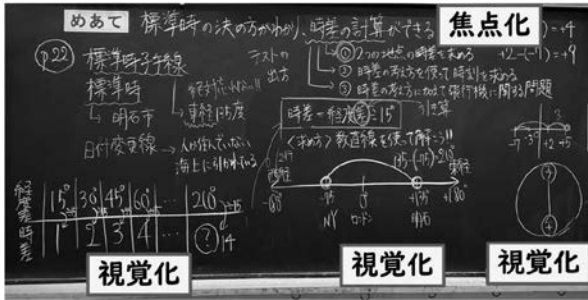 めあて 標準時の決め方がわかり、時差の計算ができる
焦点化
P22
標準時子午線
標準時
→ 明石市
→ 東経135度
日付変更線 → 人が住んでいない
海上に引かれている
テストの
出方
① 2つの地点の時差を求める
② 時差の考え方を使って時刻を求める
③ 時差の考え方に加えて飛行機に関する問題
+2-(-7)=+9
時差=経度差÷15
<求め方> 数直線を使って解こう!!
135-(-75)=210
西経
東経
-180° -75 0° +135 +180°
NY ロンドン 明石
-7 +2 +5
経度差 15° 30° 45° 60° … 210
時差 1 2 3 4 … ? 14
視覚化
視覚化
視覚化